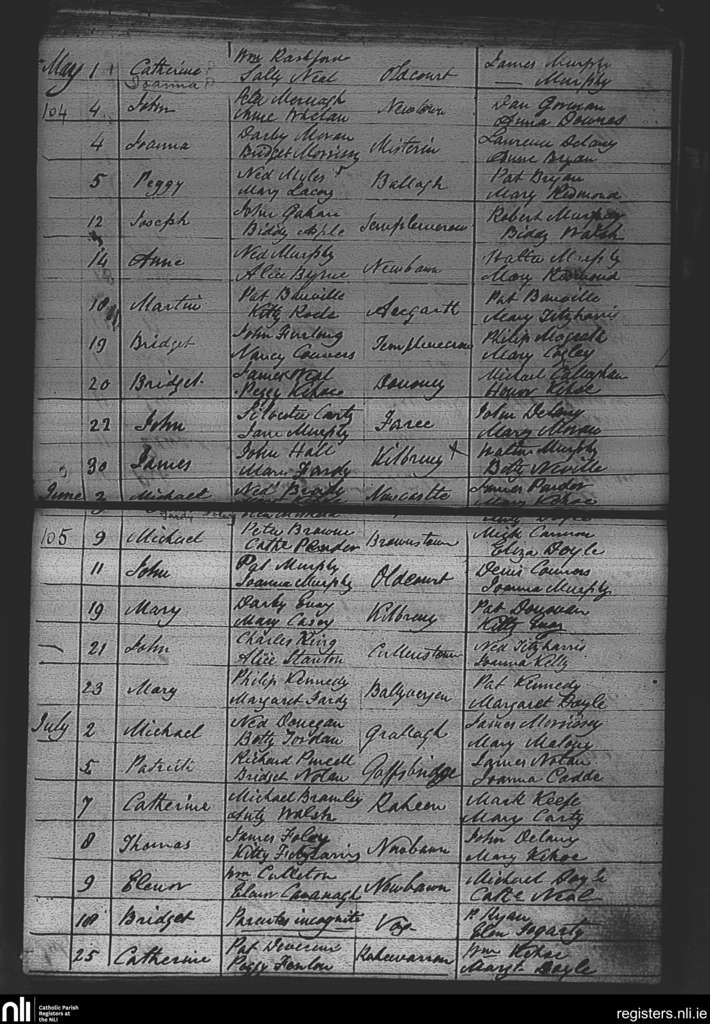 May 1 Catherine Wm Rashford Oldcourt James Murphy
Joanna Sally Neal — Murphy
104 4 John Newtown Dan Gorman
Anne Whelan Anna Downes
4 Joanna Darby Moran Misterin Lawrence Delany
Bridget Morrissy Anne Bryan
5 Peggy Ned Myles Ballagh Pat Bryan
Mary Lacey Mary Redmond
12 Joseph John Gahan Robert Murphy
Biddy Biddy Walsh
14 Anne Ned Murphy Newbawn Walter Murphy
Alice Byrne Mary Redmond
18 Martin Pat Banville Pat Banville
Kitty Roche Mary Fitzharris
19 Bridget John Furlong Philip Magrath
Nancy Connors Mary Cogley
20 Bridget James Neal Michael Callaghan
Peggy Kehoe Honor Kehoe
22 John Silvester Carty John Delany
Jane Murphy Mary Moran
30 James John Hall Kilbreny x Walter Murphy
Betty Neville
June 3 Michael Ned Newcastle James
Mary Kehoe
105 9 Michael Peter Browne Brownstown Mich Cannon
Cathe Eliza Doyle
11 John Pat Murphy Oldcourt Denis Connors
Joanna Murphy Joanna Murphy
19 Mary Darby Kilbreny Pat Donovan
Mary Casey Kitty
— 21 John Charles King Cullenstown Ned Fitzharris
Alice Stanton Joanna Kelly
23 Mary Philip Kennedy Pat Kennedy
Margaret Margaret Doyle
July 2 Michael Ned Donegan James Morrissy
Betty Jordan Mary Malony
5 Patrick Richard Purcell Goffsbridge James Nolan
Bridget Nolan Joanna Cadde
7 Catherine Michael Bramley Raheen Mark Keefe
Anty Walsh Mary Carty
8 Thomas James Foley Newbawn John Delany
Kitty Fitzharris Mary Kehoe
9 Elenor Wm Culleton Newbawn Michael Doyle
Elenor Cavanagh Cathe Neal
18 Bridget Parentes incogniti Vag P Ryan
Elen Fogarty
25 Catherine Pat Devereux Rahewarren Wm Kehoe
Peggy Fenlon Margt Doyle
nli Catholic Parish
Registers at
the NLI
registers.nli.ie